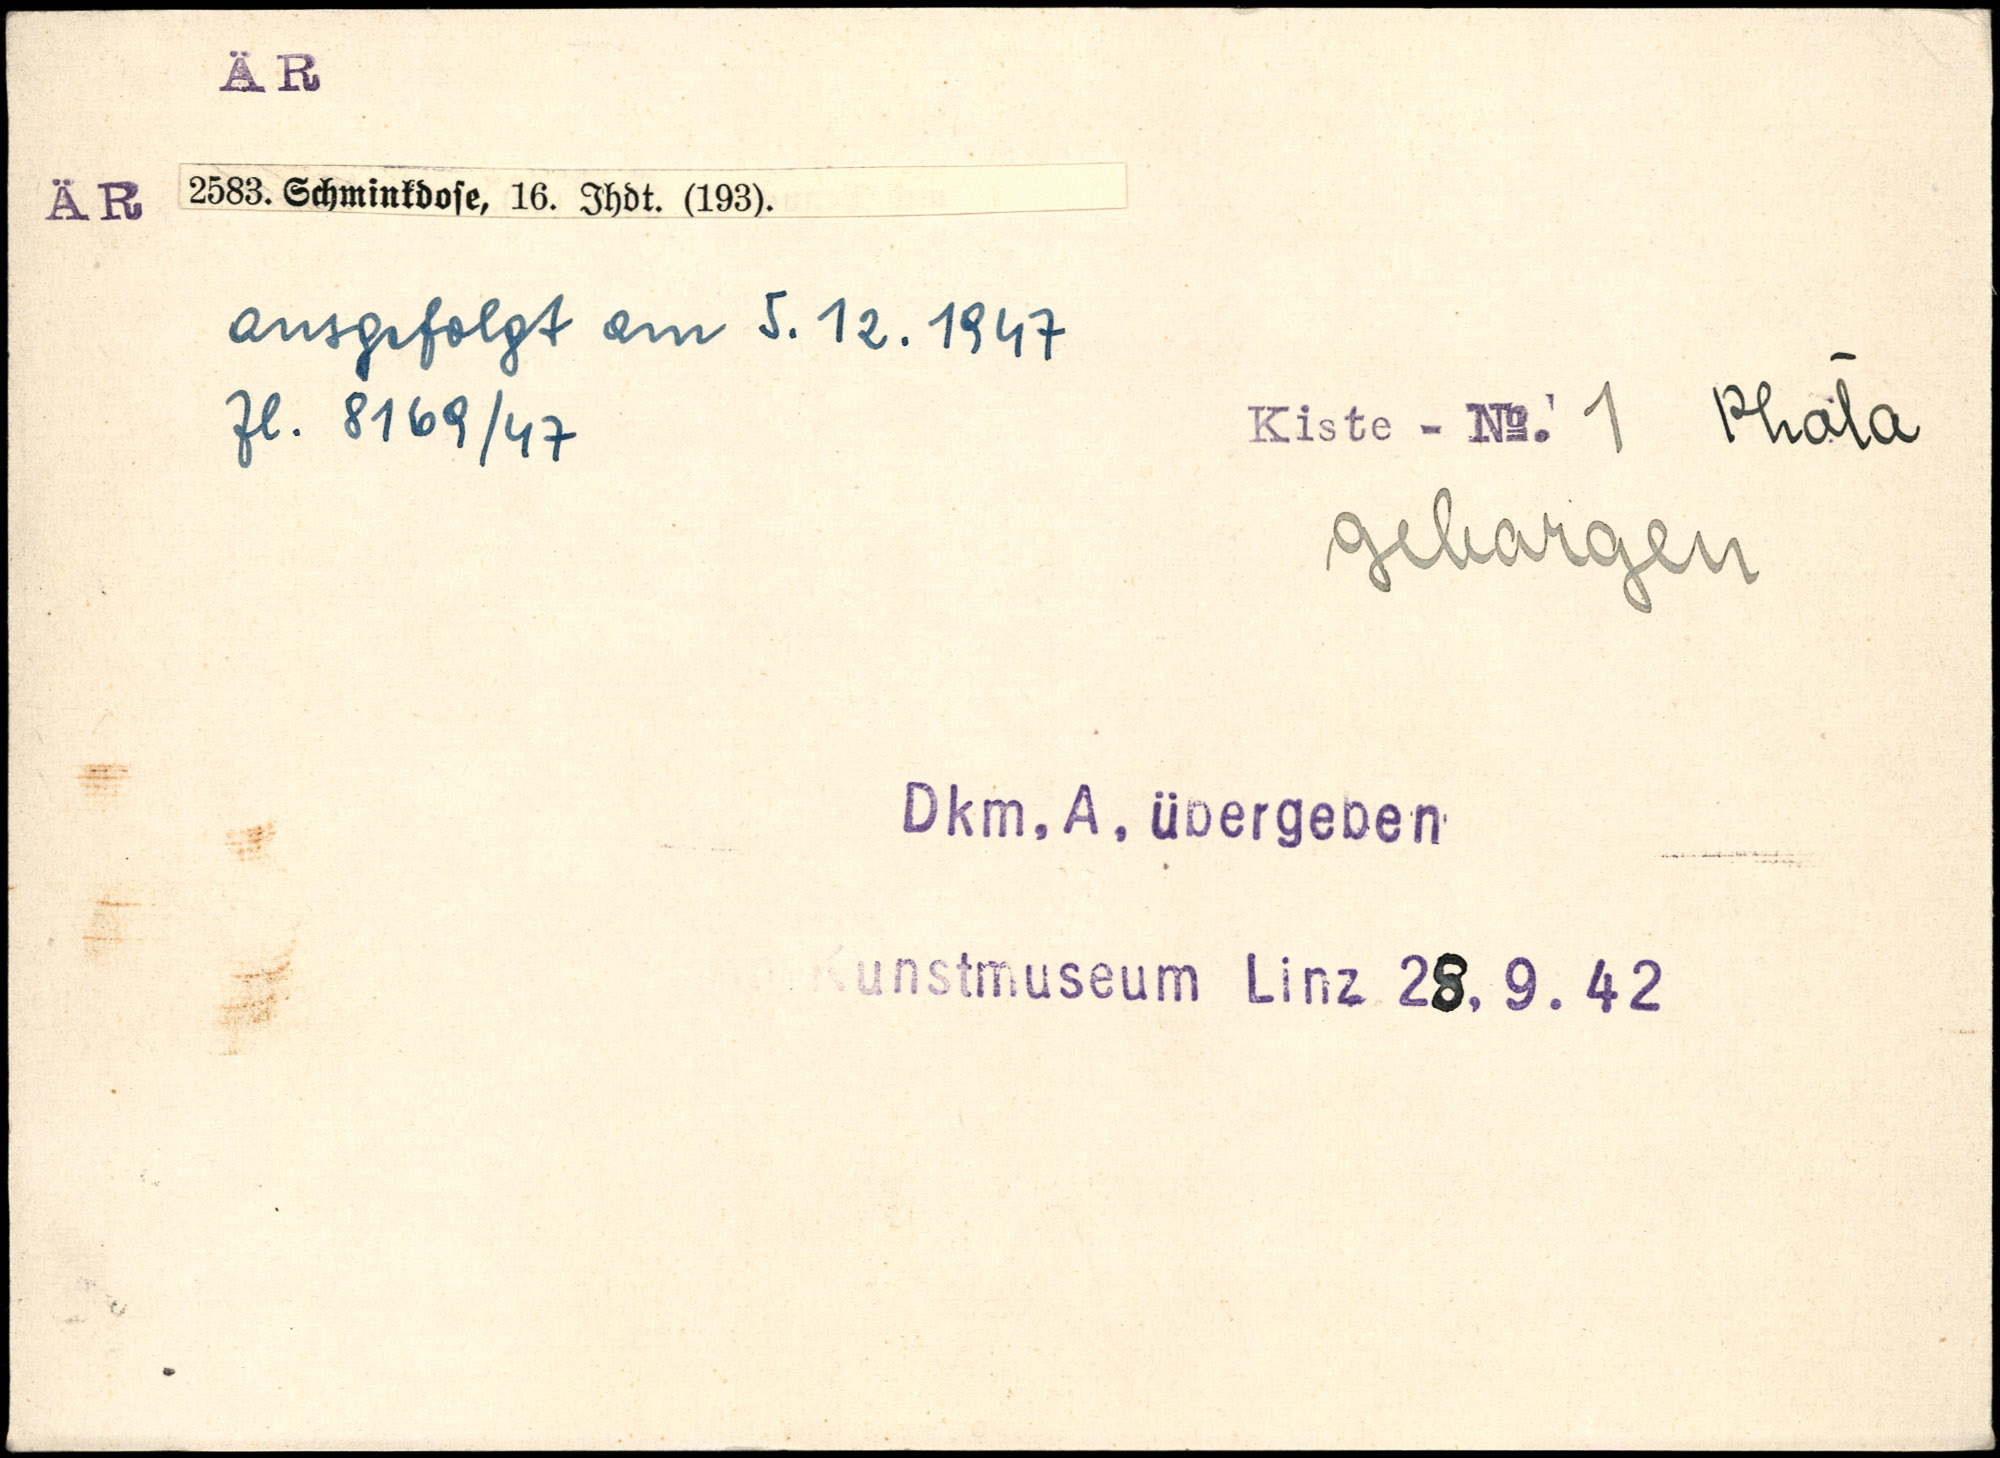 ÄR
ÄR 2583. Schminkdose, 16. Jhdt. (193).
ausgefolgt am 5.12.1947
Zl. 8169/47
Kiste - №. 1
geborgen
Dkm. A. übergeben
Kunstmuseum Linz 28.9.42